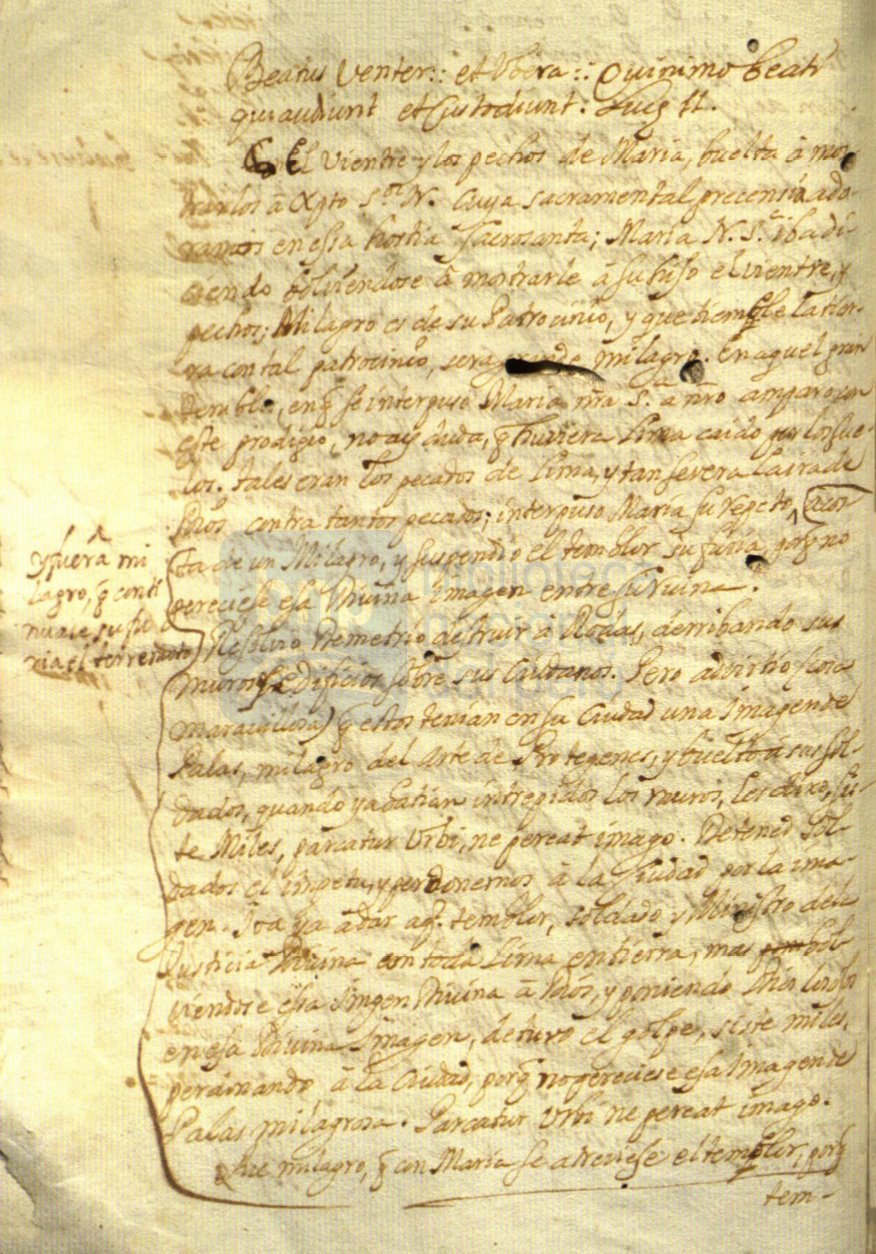 Beatus Venter:: et Vbera:: Quinimo beati
qui audiunt et Custodiunt: Luc. 11.
El vientre y los pechos de Maria, buelta â mos
trarlos â Xpto S.or N. Cuya sacramental precensia ado-
ramos en essa hostia sacrosanta; Maria N. S.a iba di
ciendo bolviendose â mostrarle â su hijo el vientre, y
pechos; Milagro es de su Patrocinio, y que tiemble la tier-
ra con tal patrocinio, sera grande milagro. En aquel gran
temblor, en q̃ se interpuso Maria nr̃a S.a â nr̃o amparo con
este prodigio, no ay duda, q̃ huviera Lima caido por los sue-
los. tales eran los pecados de Lima, y tan severa la ira de
Dios contra tantos pecados; interpuso Maria su respeto, acos
ta de un Milagro, y suspendio el temblor su furia, porq̃ no
pereciese esa Divina Imagen entre su ruina.
y fuera mi
lagro, q̃ conti
nuase su fu
ria el terremoto
Resolvio Demetrio destruir a Rodas, derribando sus
muros y Edificios sobre sus Ciudadanos. Pero advirtio (cosa
maravillosa) q̃ estos tenian en su Ciudad una Imagen de
Palas, milagro del Arte de Protegenes, y buelto â sus sol-
dados, quando ya batian intrepidos los muros, les dixo, sis-
te Miles, parcatur Vrbi, ne pereat imago. Detened sol-
dados el impetu, y perdonemos â la Ciudad por la ima-
gen. Iva ya â dar aq̃l temblor, soldado y Ministro de la
Justicia Divina con toda Lima en tierra, mas bol
viendose essa Imgen Divina â Dios, y poniendo Dios los ojos
en esa Divina Imagen, detuvo el golpe, siste miles,
perdonando â la Ciudad, porq̃ no pereciese esa Imagen de
Palas milagrosa. Parcatur Vrbi ne pereat imago.
Que milagro, q̃ con Maria se atreviese el temblor, porq̃
tem-
biblioteca
nacional
del perú